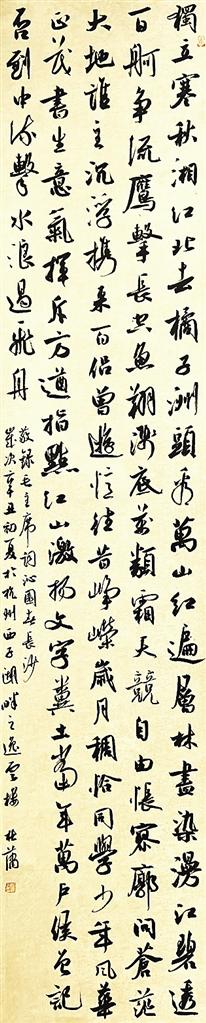 獨立寒秋湘江北去橘子洲頭看萬山紅遍層林盡染漫江碧透
百舸争流鷹擊長空魚翔淺底萬類霜天競自由悵寥廓問蒼茫
大地誰主沉浮携來百侣曾遊憶往昔崢嶸歲月稠恰同學少年風華
正茂書生意氣揮斥方遒指點江山激揚文字糞土當年萬戶侯曾記
否到中流擊水浪遏飛舟
敬録毛主席詞沁園春長沙
歲次辛丑初夏於杭州西子湖畔之逸雲樓